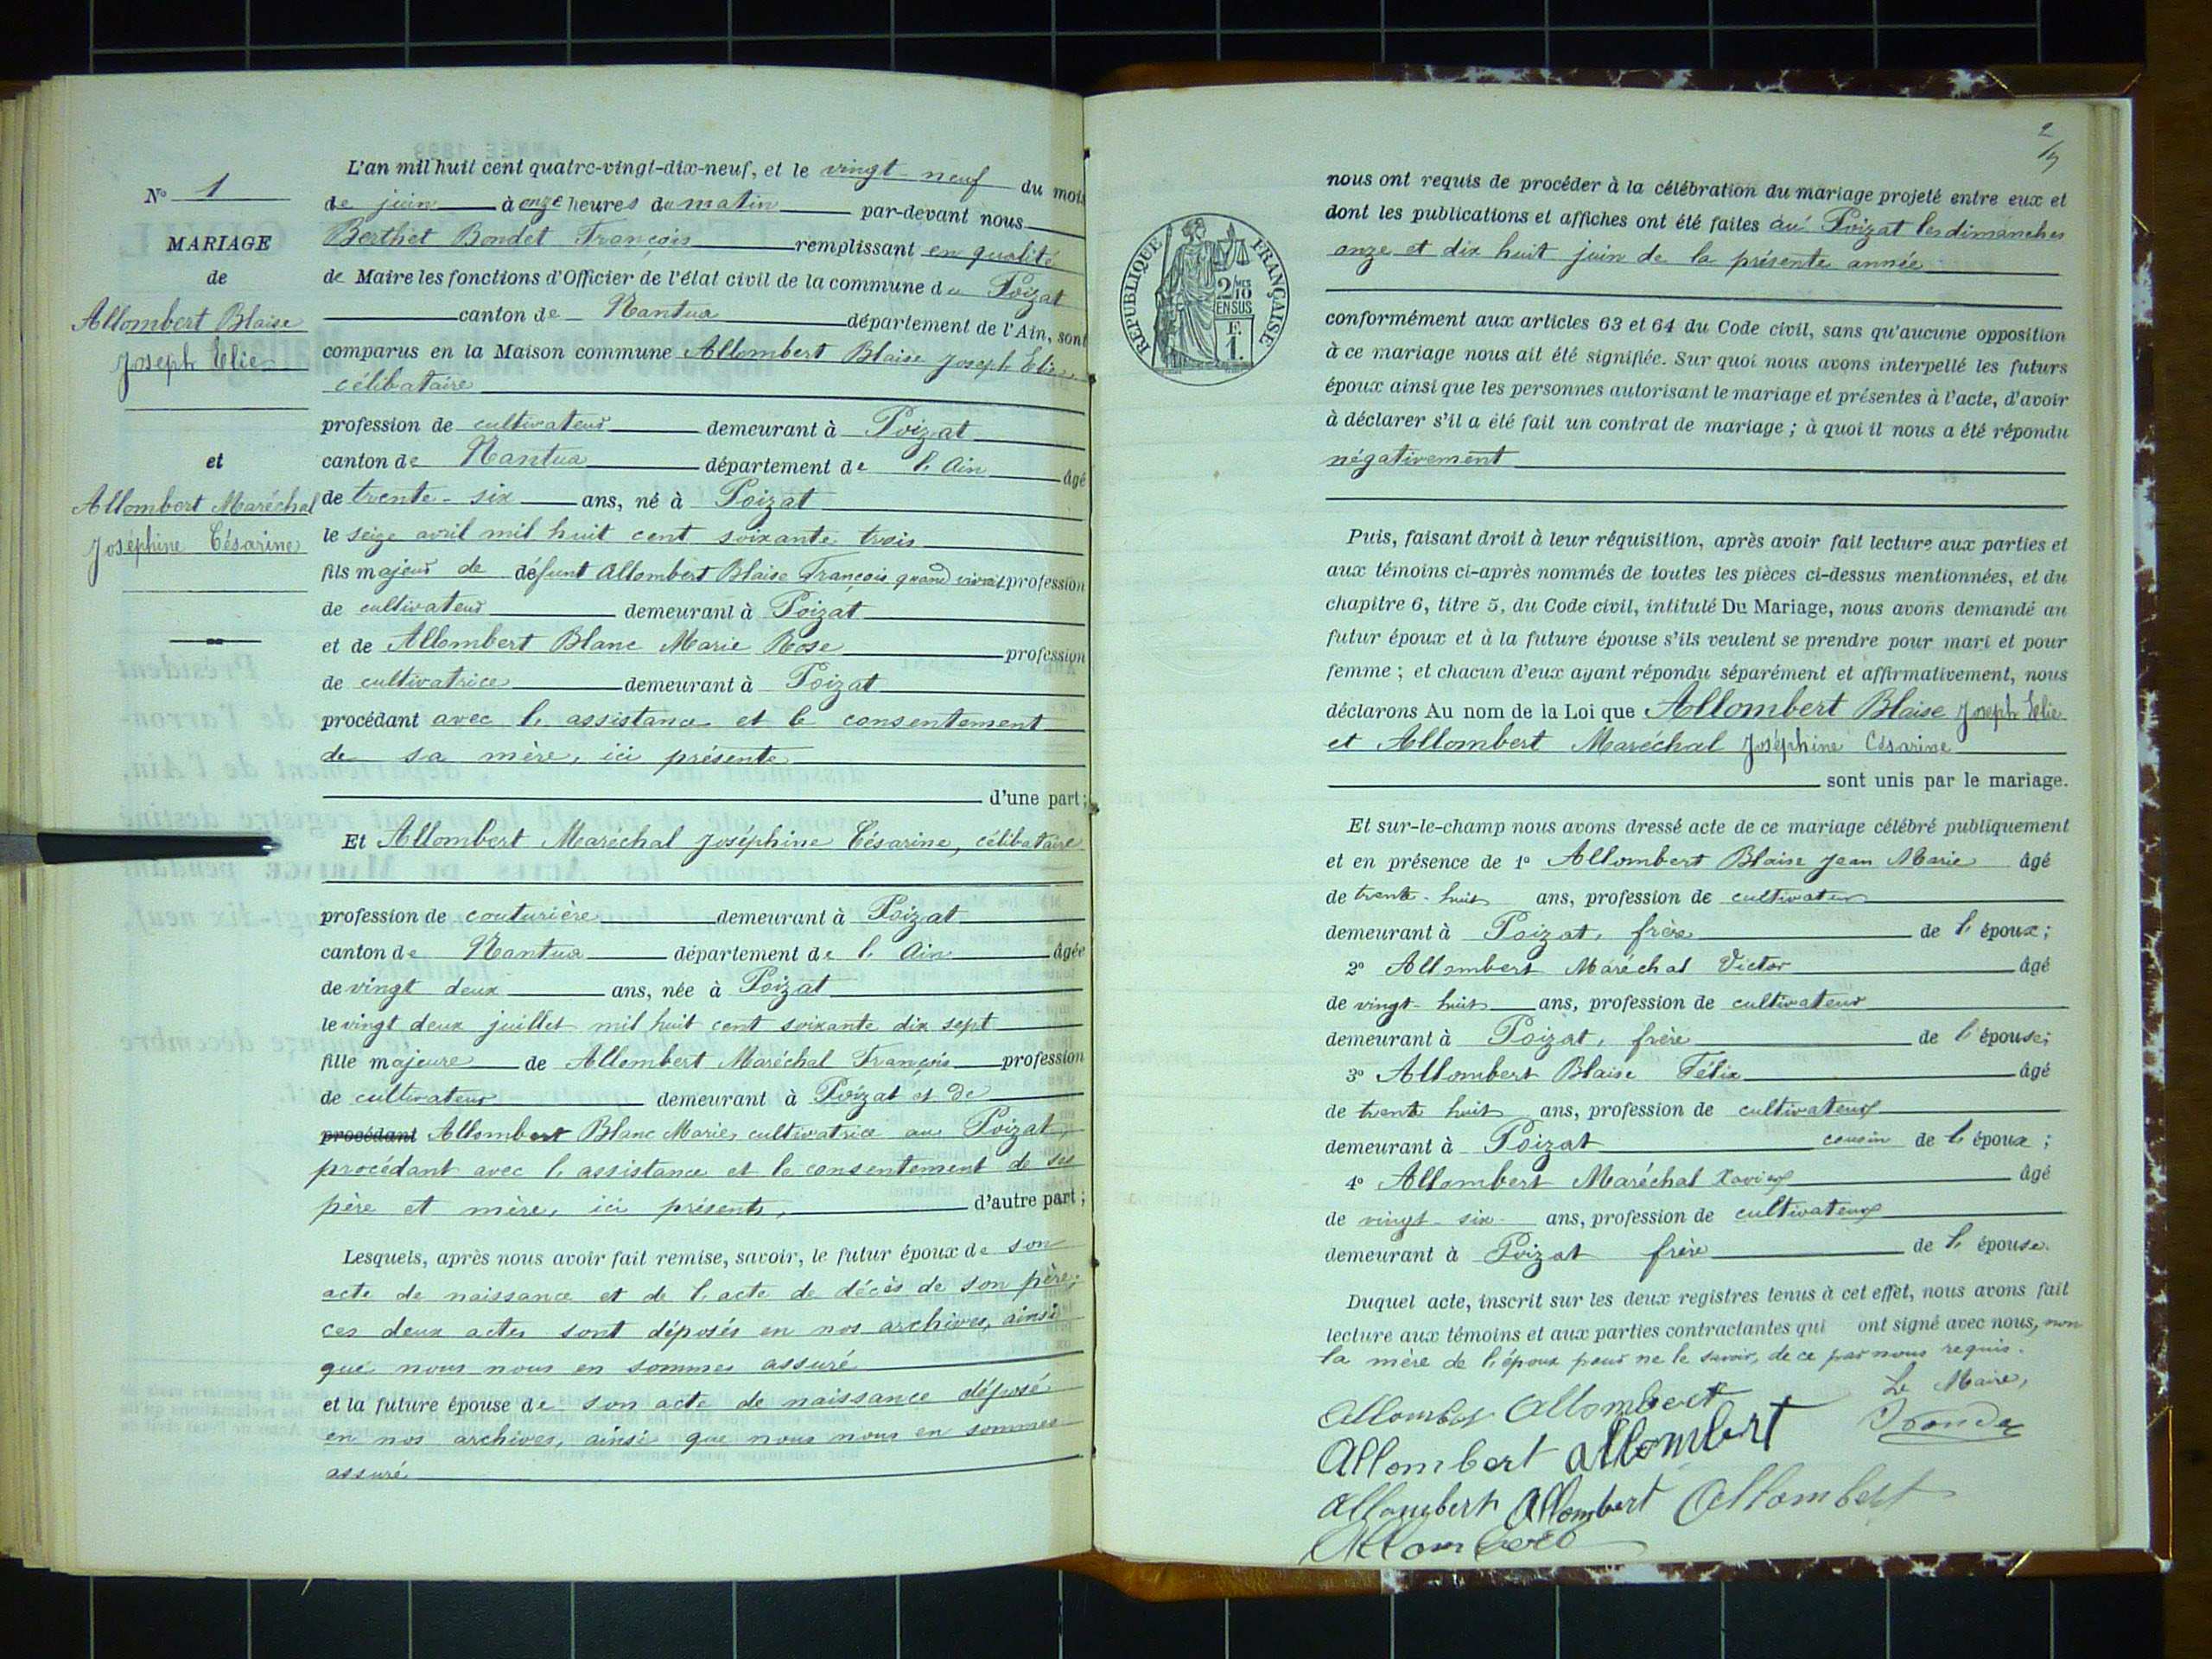 N° 1
MARIAGE
de
Allombert Blaise
Joseph Elie
et
Allombert Maréchal
Joséphine Césarine
L'an mil huit cent quatre-vingt-dix-neuf, et le vingt-neuf du mois
de juin à onze heures du matin par-devant nous
Berthet Bondet François remplissant en qualité
de Maire les fonctions d'Officier de l'état civil de la commune du Poizat
canton de Nantua département de l'Ain, sont
comparus en la Maison commune Allombert Blaise Joseph Elie,
célibataire
profession de cultivateur demeurant à Poizat
canton de Nantua département de l'Ain âgé
de trente-six ans, né à Poizat
le seize avril mil huit cent soixante trois
fils majeur de défunt Allombert Blaise François quand vivait profession
de cultivateur demeurant à Poizat
et de Allombert Blanc Marie Rose profession
de cultivatrice demeurant à Poizat
procédant avec l'assistance et le consentement
de sa mère, ici présente
d'une part;
Et Allombert Maréchal Joséphine Césarine, célibataire
profession de couturière demeurant à Poizat
canton de Nantua département de l'Ain âgée
de vingt deux ans, née à Poizat
le vingt deux juillet mil huit cent soixante dix sept
fille majeure de Allombert Maréchal François profession
de cultivateur demeurant à Poizat et de
procédant Allombert Blanc Marie, cultivatrice au Poizat,
procédant avec l'assistance et le consentement de ses
père et mère, ici présents, d'autre part;
Lesquels, après nous avoir fait remise, savoir, le futur époux de son
acte de naissance et de l'acte de décès de son père;
ces deux actes sont déposés en nos archives, ainsi
que nous nous en sommes assuré
et la future épouse de son acte de naissance déposé
en nos archives, ainsi que nous nous en sommes
assuré
2
RÉPUBLIQUE FRANÇAISE
2/10MES
EN SUS
F.
1.
nous ont requis de procéder à la célébration du mariage projeté entre eux et
dont les publications et affiches ont été faites au Poizat les dimanches
onze et dix huit juin de la présente année
conformément aux articles 63 et 64 du Code civil, sans qu'aucune opposition
à ce mariage nous ait été signifiée. Sur quoi nous avons interpellé les futurs
époux ainsi que les personnes autorisant le mariage et présentes à l'acte, d'avoir
à déclarer s'il a été fait un contrat de mariage; à quoi il nous a été répondu
négativement
Puis, faisant droit à leur réquisition, après avoir fait lecture aux parties et
aux témoins ci-après nommés de toutes les pièces ci-dessus mentionnées, et du
chapitre 6, titre 5, du Code civil, intitulé Du Mariage, nous avons demandé au
futur époux et à la future épouse s'ils veulent se prendre pour mari et pour
femme; et chacun d'eux ayant répondu séparément et affirmativement, nous
déclarons Au nom de la Loi que Allombert Blaise Joseph Elie
et Allombert Maréchal Joséphine Césarine
sont unis par le mariage.
Et sur-le-champ nous avons dressé acte de ce mariage célébré publiquement
et en présence de 1° Allombert Blaise Jean Marie âgé
de trente-huit ans, profession de cultivateur
demeurant à Poizat, frère de l'époux;
2° Allombert Maréchal Victor âgé
de vingt-huit ans, profession de cultivateur
demeurant à Poizat, frère de l'épouse;
3° Allombert Blaise Félix âgé
de trente huit ans, profession de cultivateur
demeurant à Poizat cousin de l'époux;
4° Allombert Maréchal Xavier âgé
de vingt-six ans, profession de cultivateur
demeurant à Poizat frère de l'épouse.
Duquel acte, inscrit sur les deux registres tenus à cet effet, nous avons fait
lecture aux témoins et aux parties contractantes qui ont signé avec nous, non
la mère de l'époux pour ne le savoir, de ce par nous requis.
Le Maire,
Allombert Allombert
Allombert allombert
Allombert Allombert Allombert
Allombert